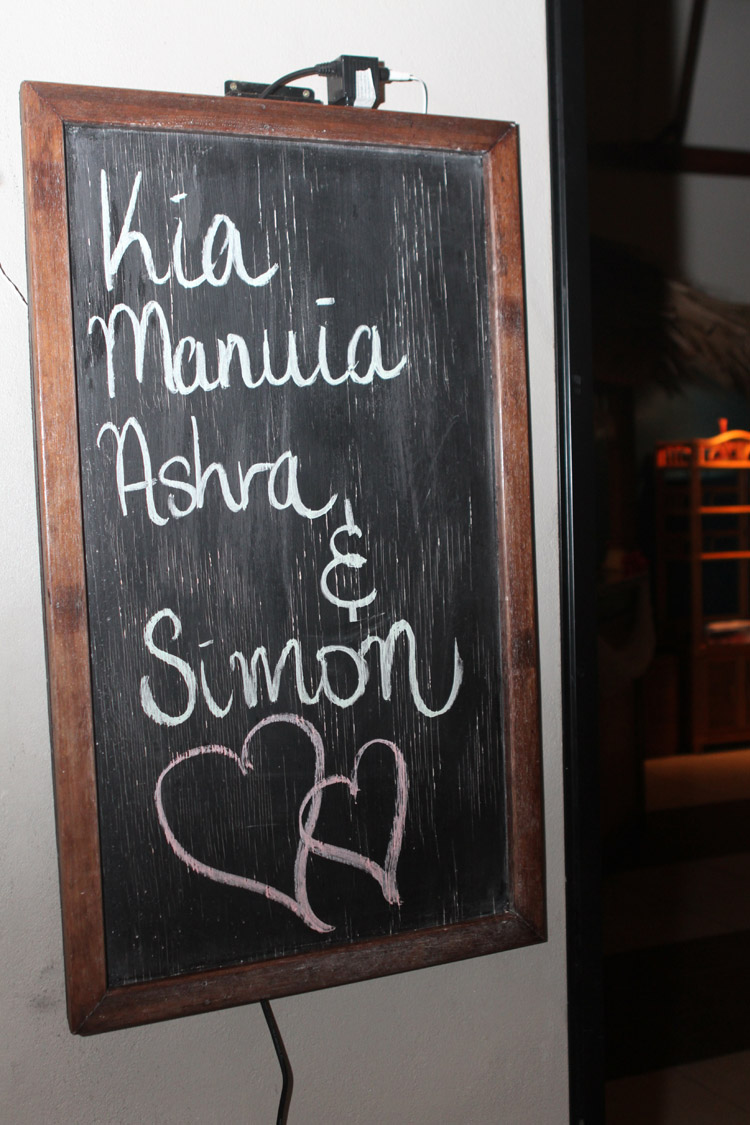 Kia
Manuia
Ashra
&
Simon